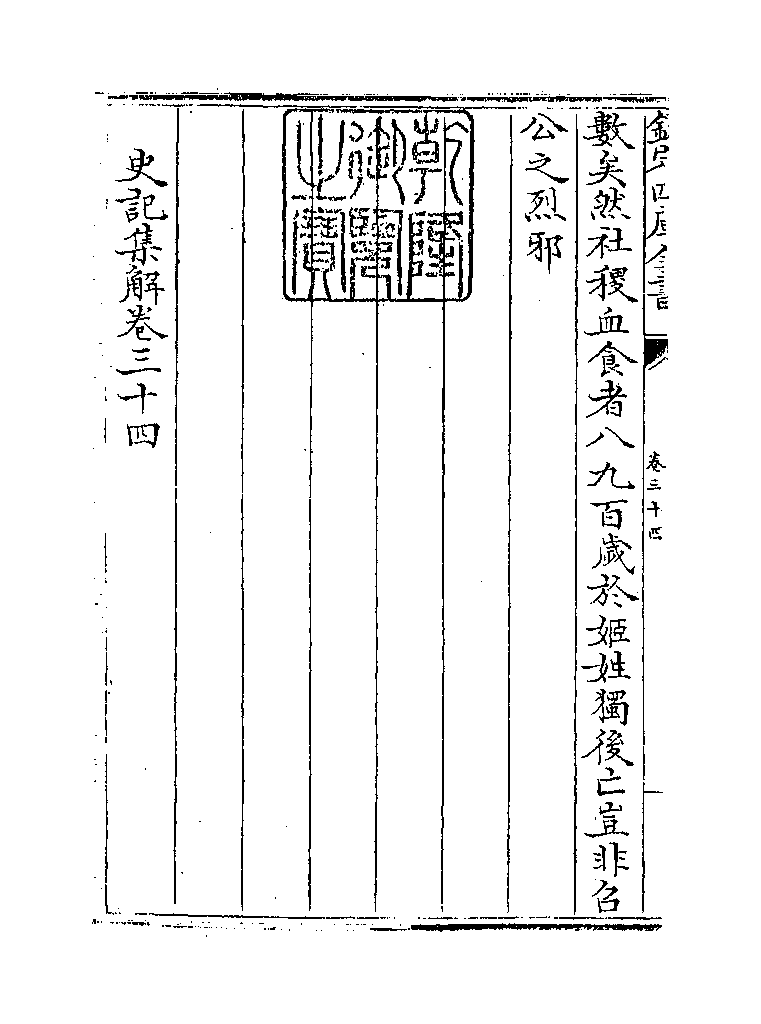 欽定四庫全書
卷三十四
數矣然社稷血食者八九百歲於姬姓獨後亡豈非召
公之烈邪
乾隆御覽之寶
史記集解卷三十四